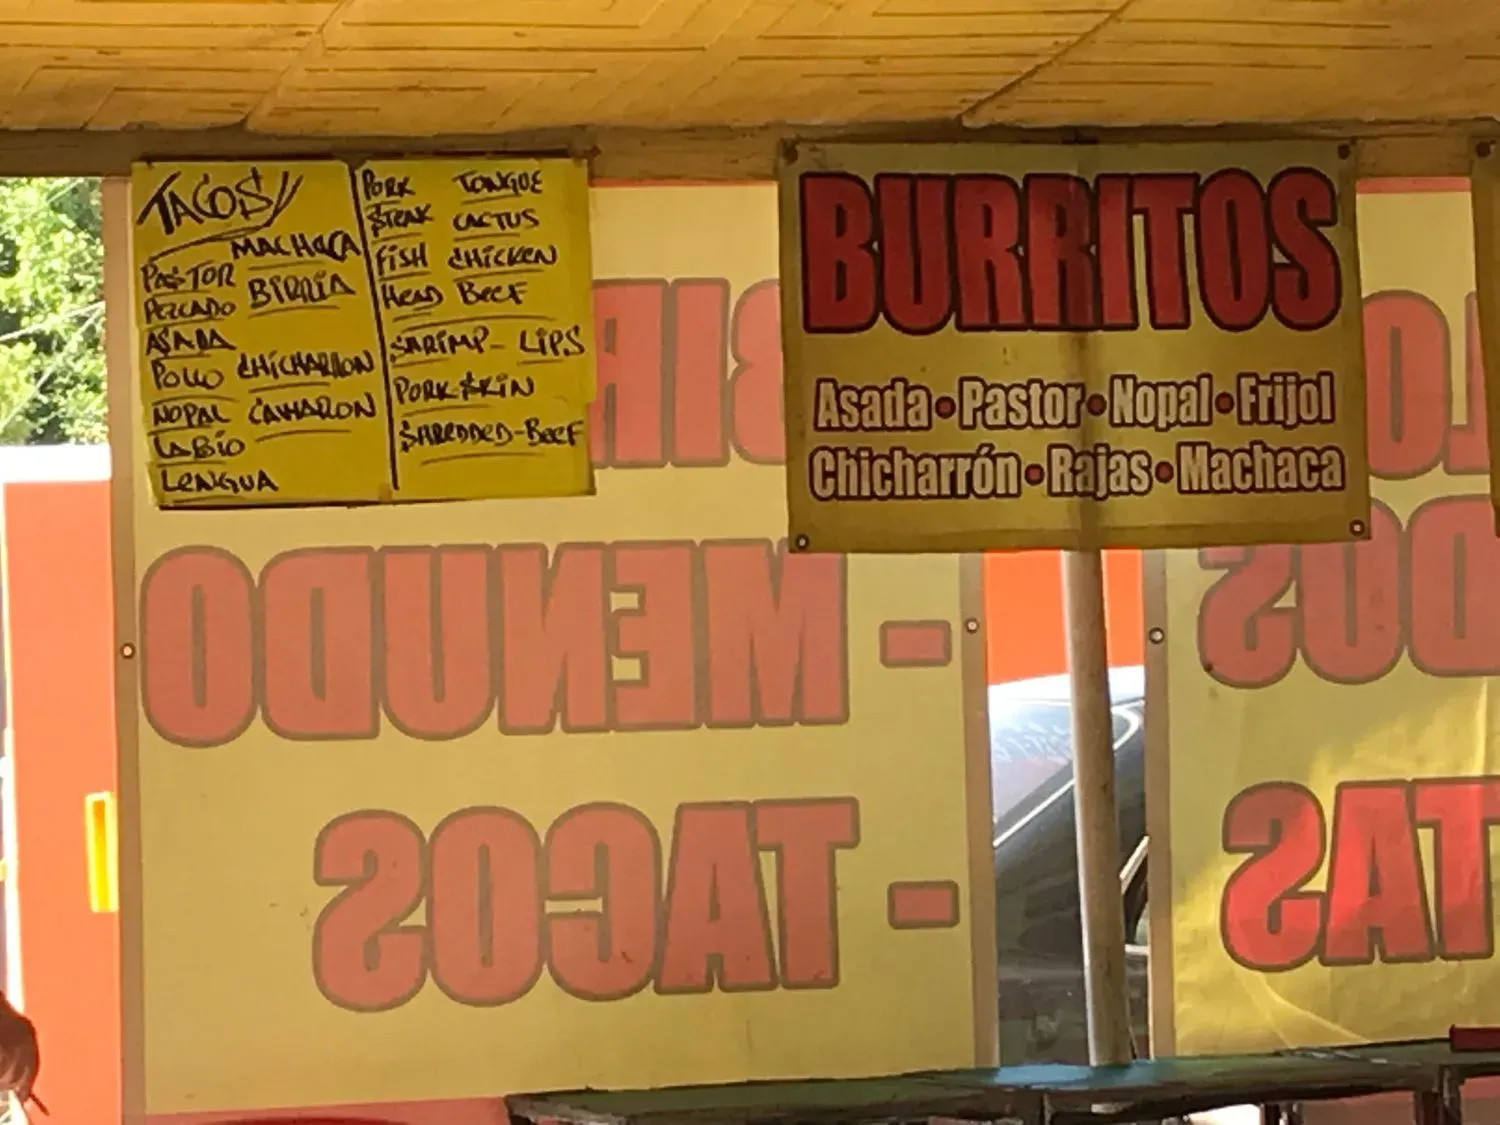 TACOS
MACHACA
PASTOR
PEZCADO BIRRIA
ASADA
POLLO CHICHARRON
NOPAL CAMARON
LABIO
LENGUA
PORK TONGUE
STEAK CACTUS
FISH CHICKEN
HEAD BEEF
SHRIMP- LIPS
PORK SKIN
SHREDDED-BEEF
BURRITOS
Asada • Pastor • Nopal • Frijol
Chicharrón • Rajas • Machaca
BIR
- MENUDO
- TACOS
LO
DOS
TAS